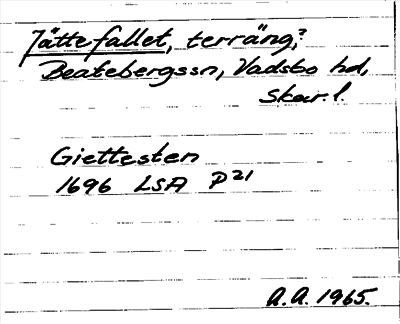 Jättefallet, terräng,?
Beatebergssn, Vadsbo hd,
Skar. l.
Giettesten
1696 LSA P21
A.A. 1965.